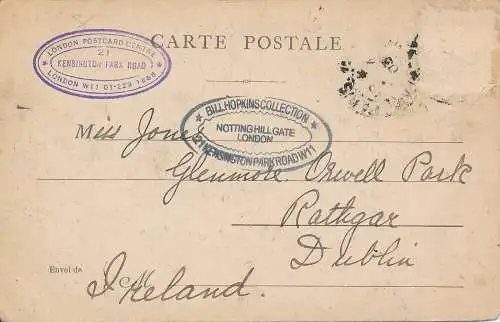 LONDON POSTCARD CENTRE
21
KENSINGTON PARK ROAD
LONDON W11 01-229 1888
CARTE POSTALE
BILL HOPKINS COLLECTION
NOTTING HILL GATE
LONDON
21 KENSINGTON PARK ROAD W11
Miss Jones
Glenmore. Orwell Park
Rathgar
Dublin
Envoi de
Ireland.